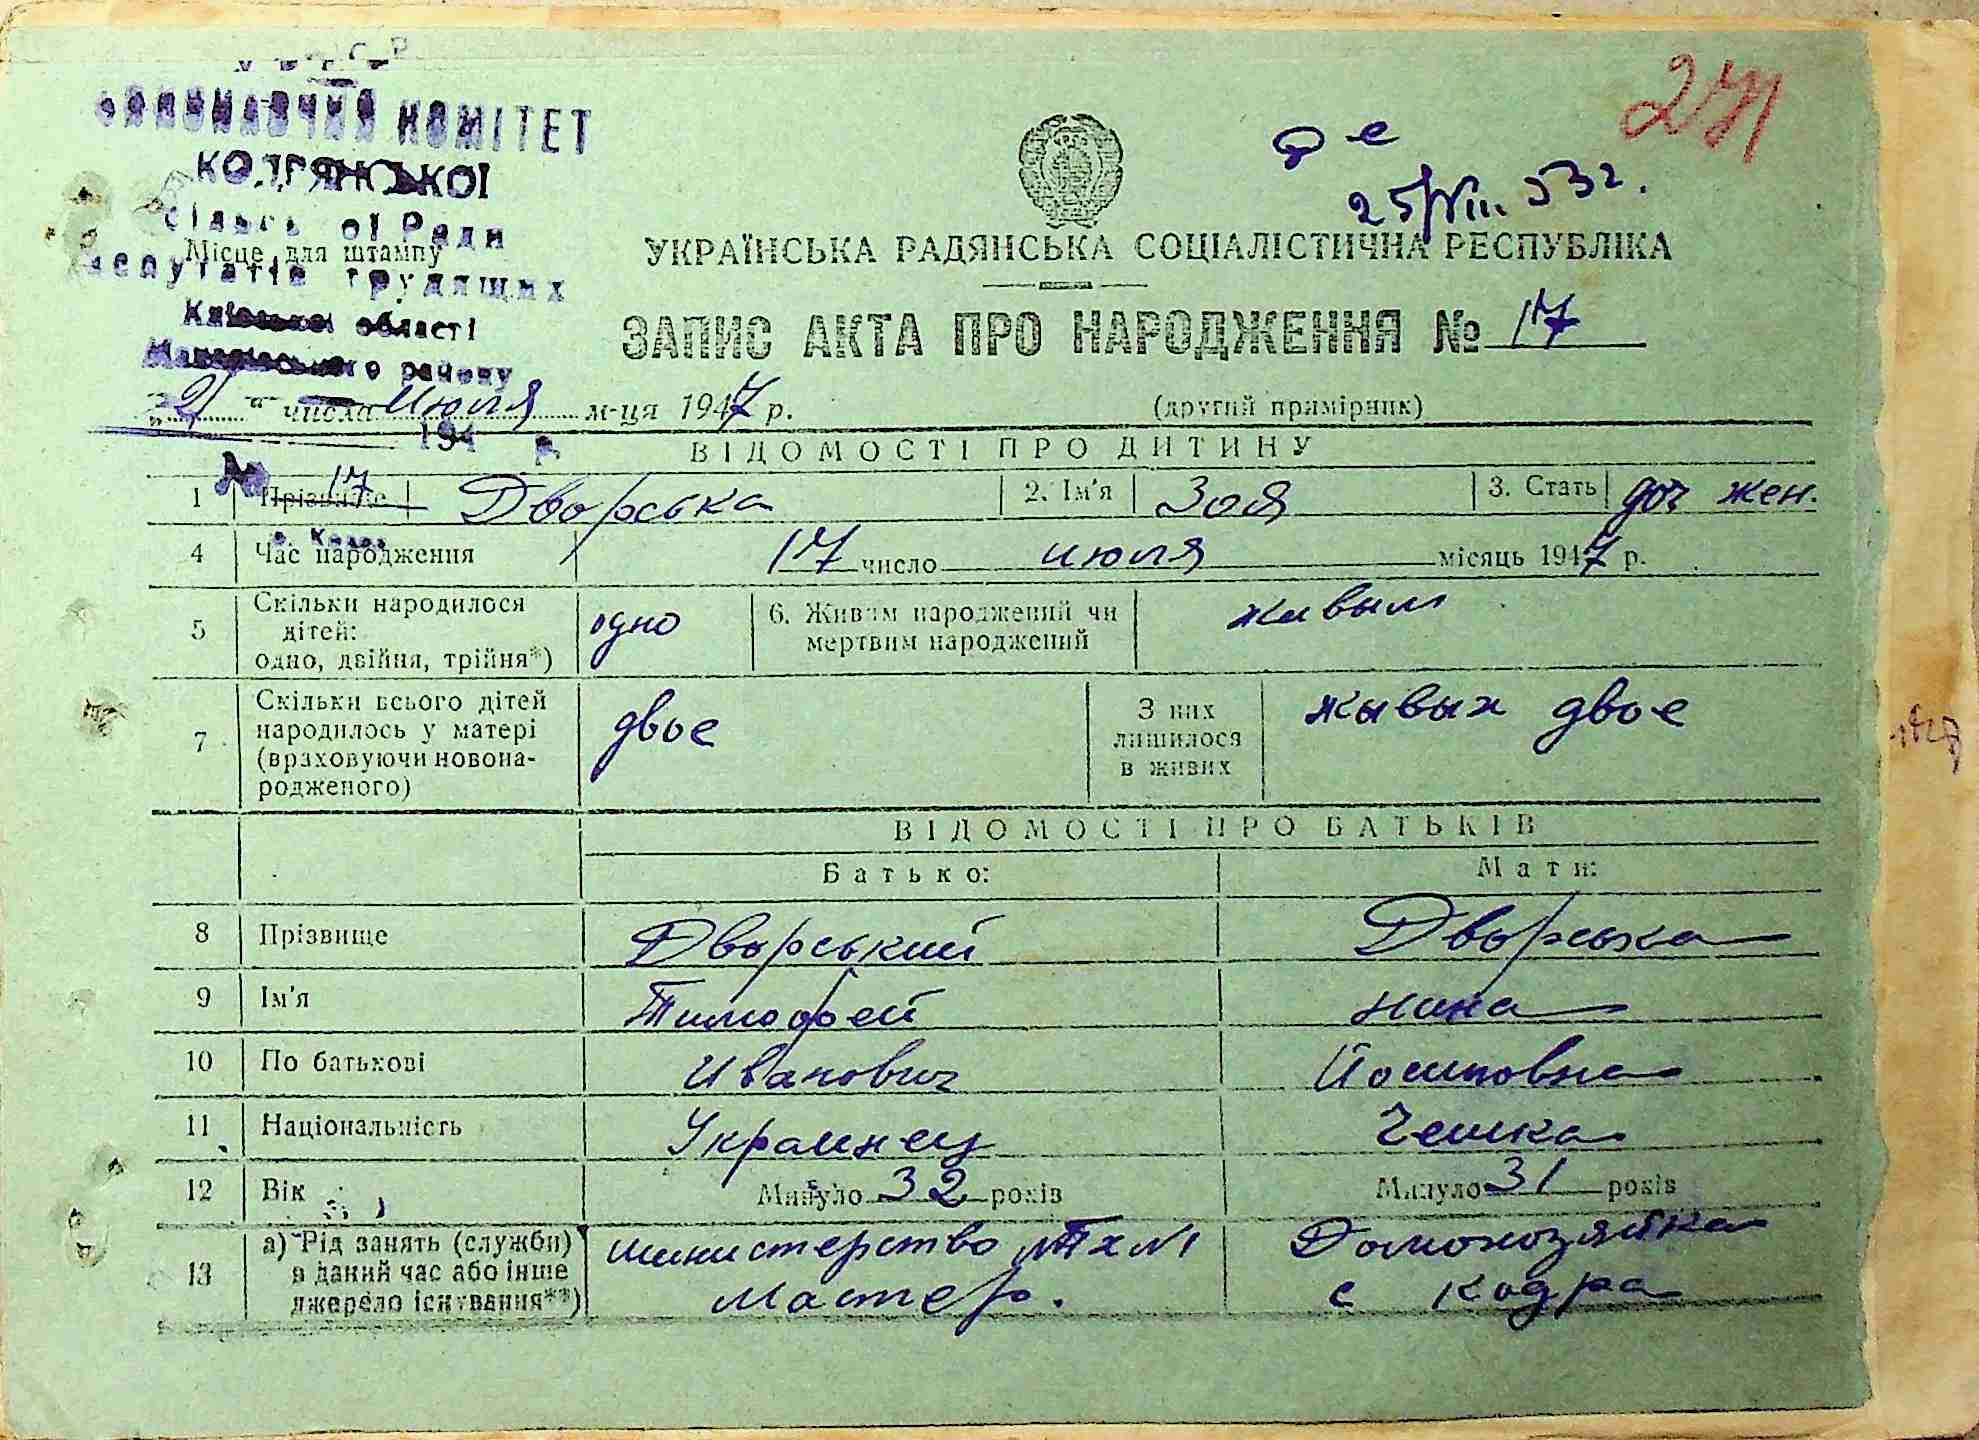 КОМІТЕТ
271
25/VIII 53г.
Ради
Місце для штампу
трудящих
області
району
УКРАЇНСЬКА РАДЯНСЬКА СОЦІАЛІСТИЧНА РЕСПУБЛІКА
ЗАПИС АКТА ПРО НАРОДЖЕННЯ № 17
числа июля м-ця 1947 р. (другий примірник)
194 р.
ВІДОМОСТІ ПРО ДИТИНУ
№ 17
1 Прізвище Дворська 2. Ім'я Зоя 3. Стать доч жен.
4 Час народження 17 число июля місяць 1947 р.
5 Скільки народилося дітей: одно, двійня, трійня*) одно 6. Живим народжений чи мертвим народжений живым
7 Скільки всього дітей народилось у матері (враховуючи новонародженого) двое З них лишилося в живих живых двое
ВІДОМОСТІ ПРО БАТЬКІВ
Батько: Мати:
8 Прізвище Дворський Дворська
9 Ім'я Тимофей нина
10 По батькові Иванович Йосиповна
11 Національність Украинец Чешка
12 Вік Минуло 32 років Минуло 31 років
13 а) Рід занять (служби) в даний час або інше джерело існування**) министерство Мастер. Домохозяйка с кодра